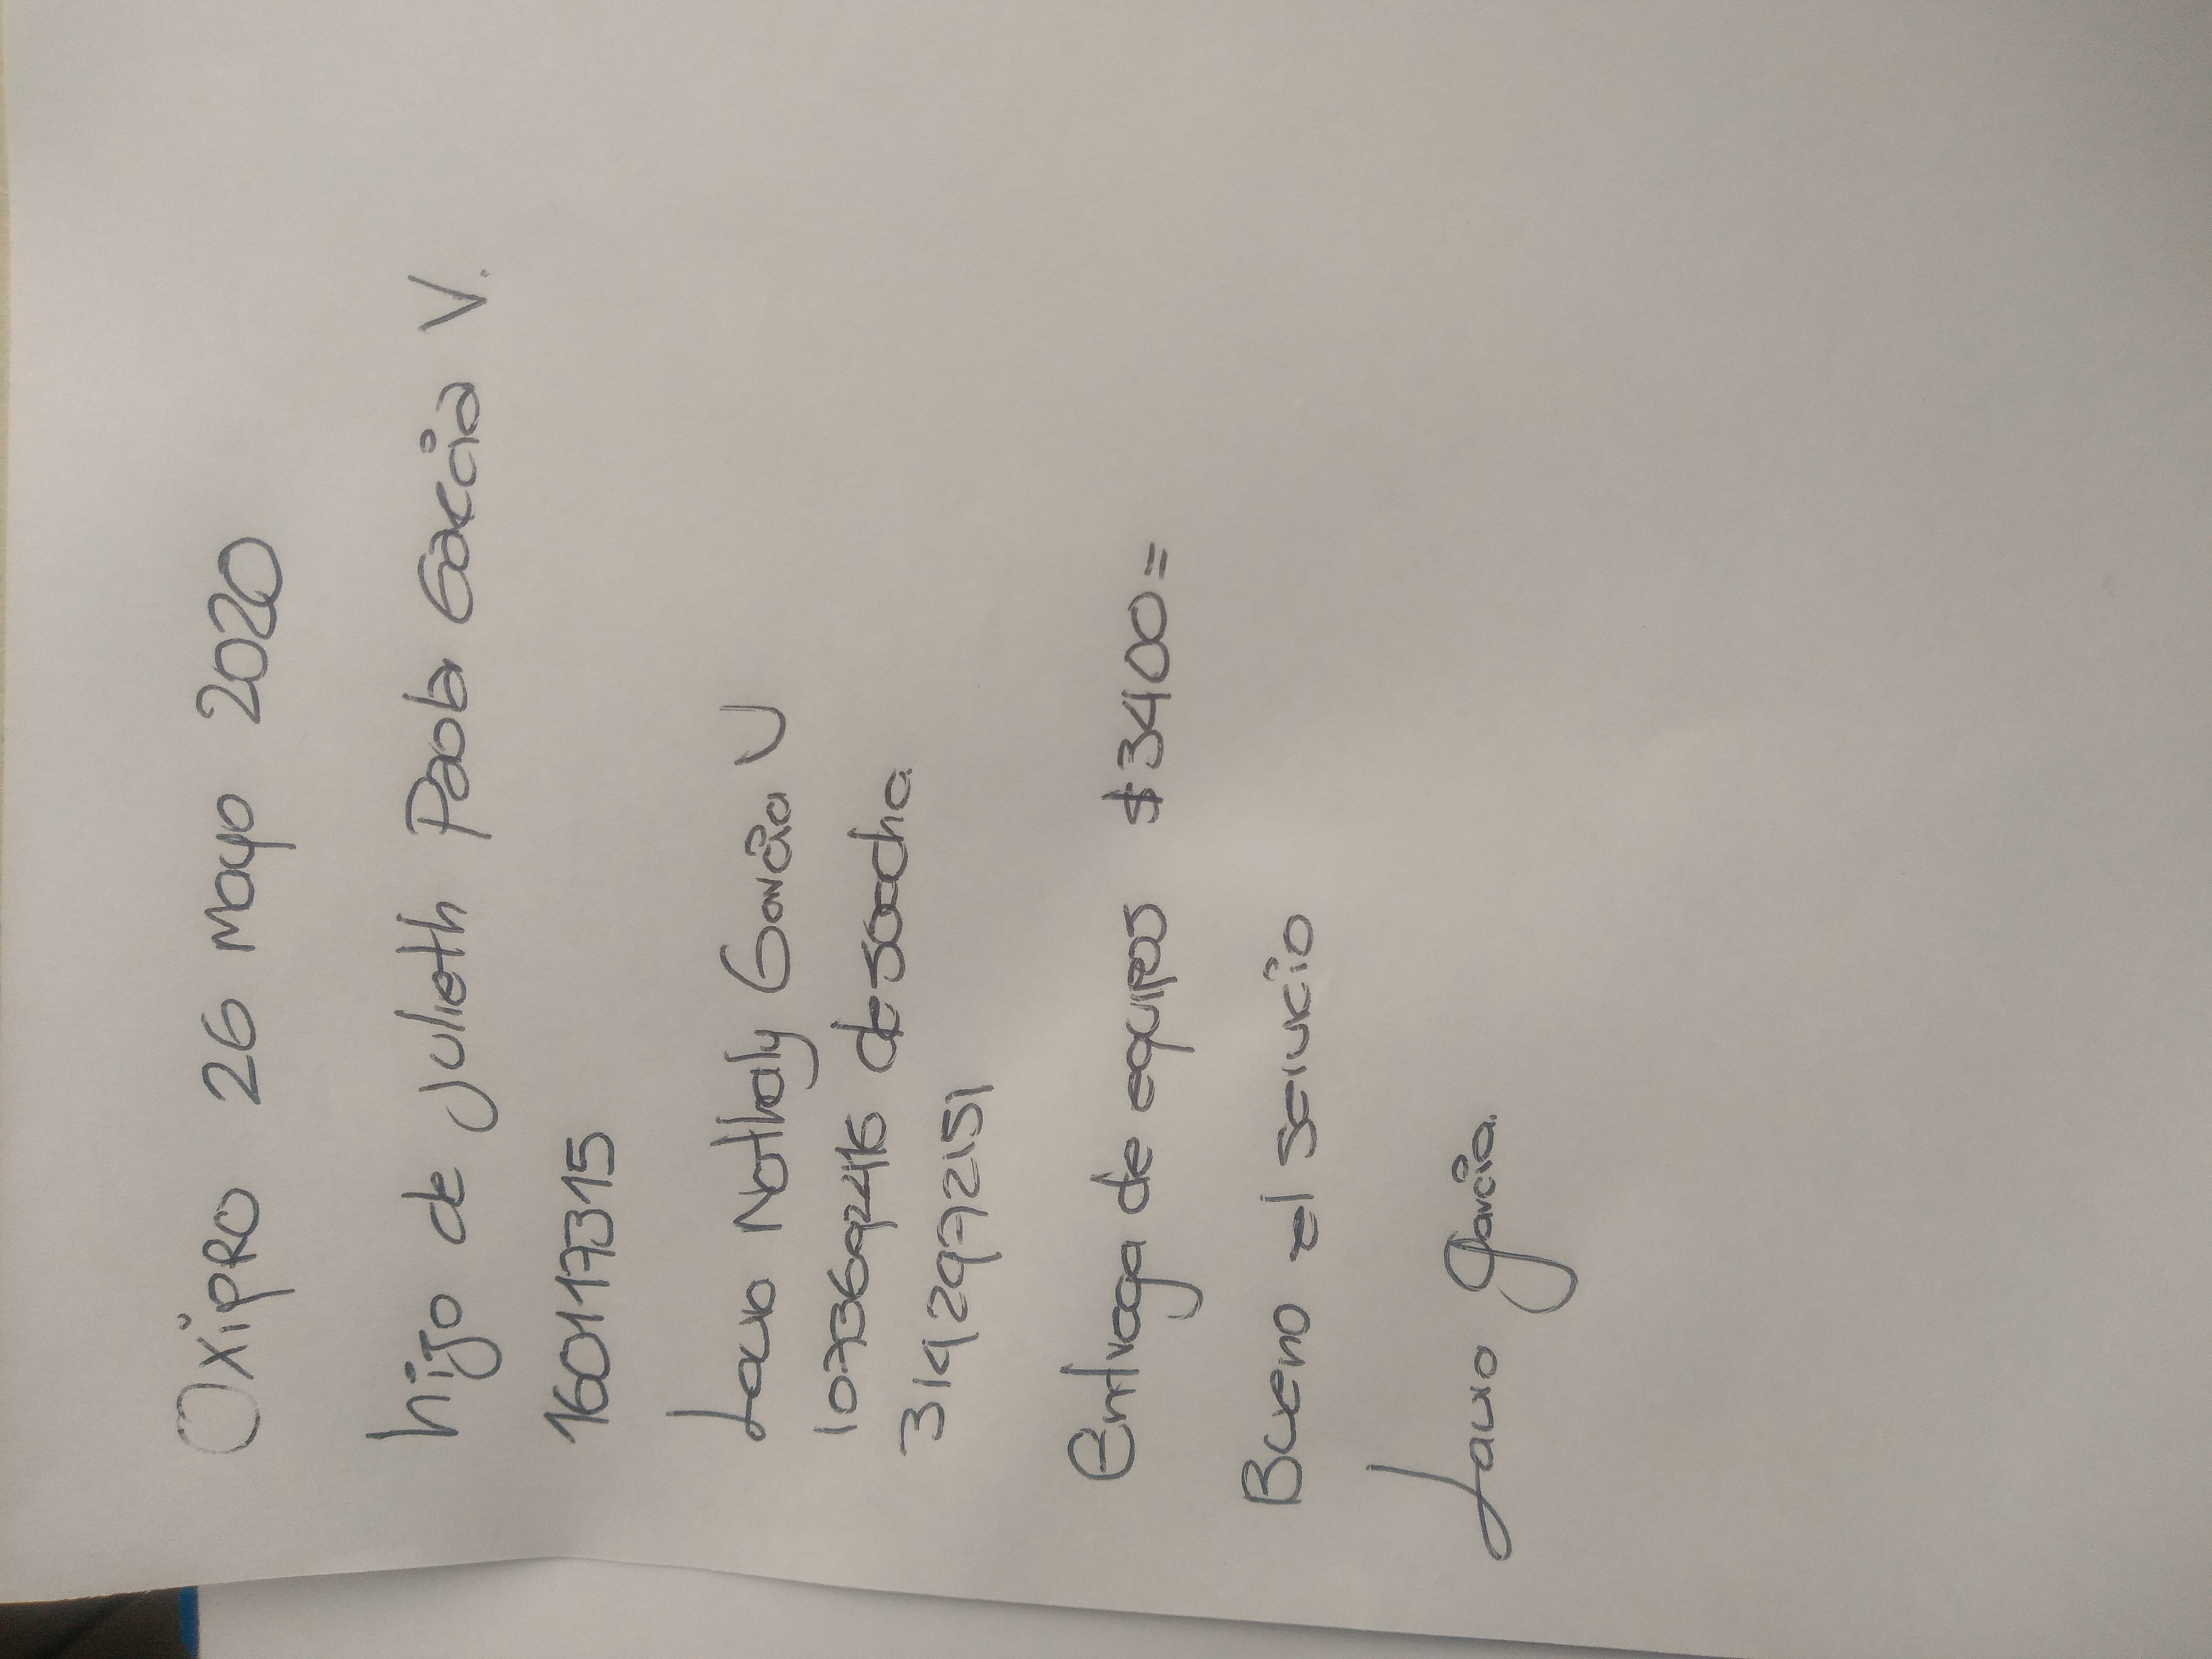 Oxipro 26 Mayo 2020
hijo de Julieth Paola Garcia V.
160117315
Laura Nathaly Garcia V
1073692416 de soacha
3142972151
Entrega de equipos $3400=
Bueno el servicio
Laura Garcia.